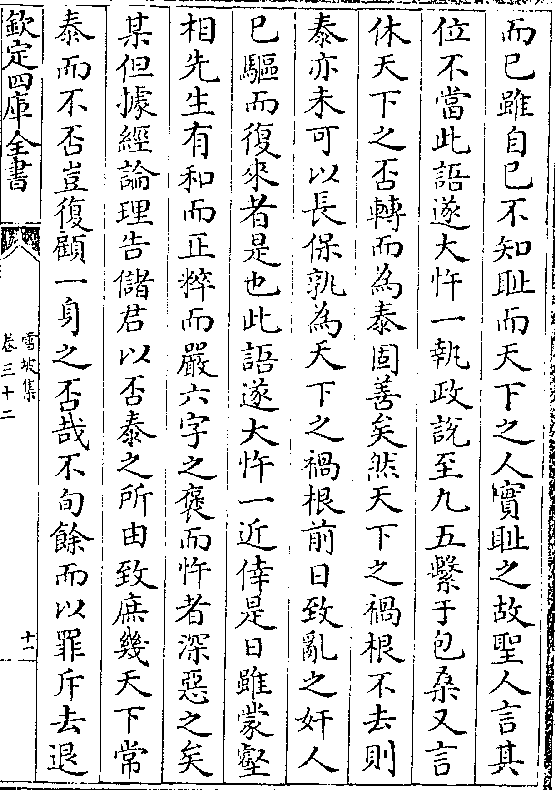 而已雖自已不知耻而天下之人實耻之故聖人言其
位不當此語遂大忤一執政說至九五繫于包桑又言
休天下之否轉而為泰固善矣然天下之禍根不去則
泰亦未可以長保孰為天下之禍根前日致亂之奸人
已驅而復來者是也此語遂大忤一近倖是日雖蒙壑
相先生有和而正粹而嚴六字之褒而忤者深惡之矣
某但據經論理告儲君以否泰之所由致庶幾天下常
泰而不否豈復顧一身之否哉不旬餘而以罪斥去退
欽定四庫全書
雪坡集
卷三十二
十一